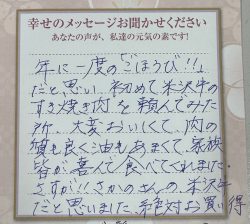 幸せのメッセージお聞かせください
あなたの声が、私達の元気の素です!
年に一度の「ごほうび!!」
だと思い、初めて米沢牛の
すき焼き肉を頼んでみた
所、大変おいしくて、肉の
質も良く油もあまくて、家族
皆が喜んで食べてくれました。
さすが!!さかのさんの、米沢牛
だと思いました 絶対お買い得